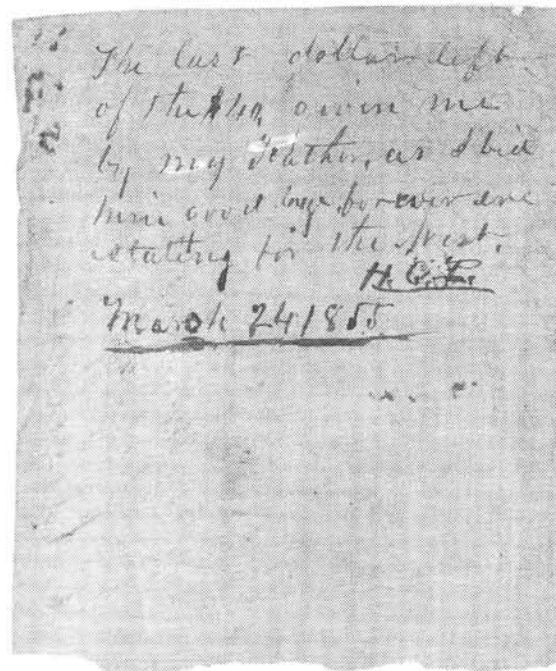 The last dollar left
of the $40, given me
by my Father, as I bid
him good bye forever
stating for the West.
H. C. L.
March 24 1855